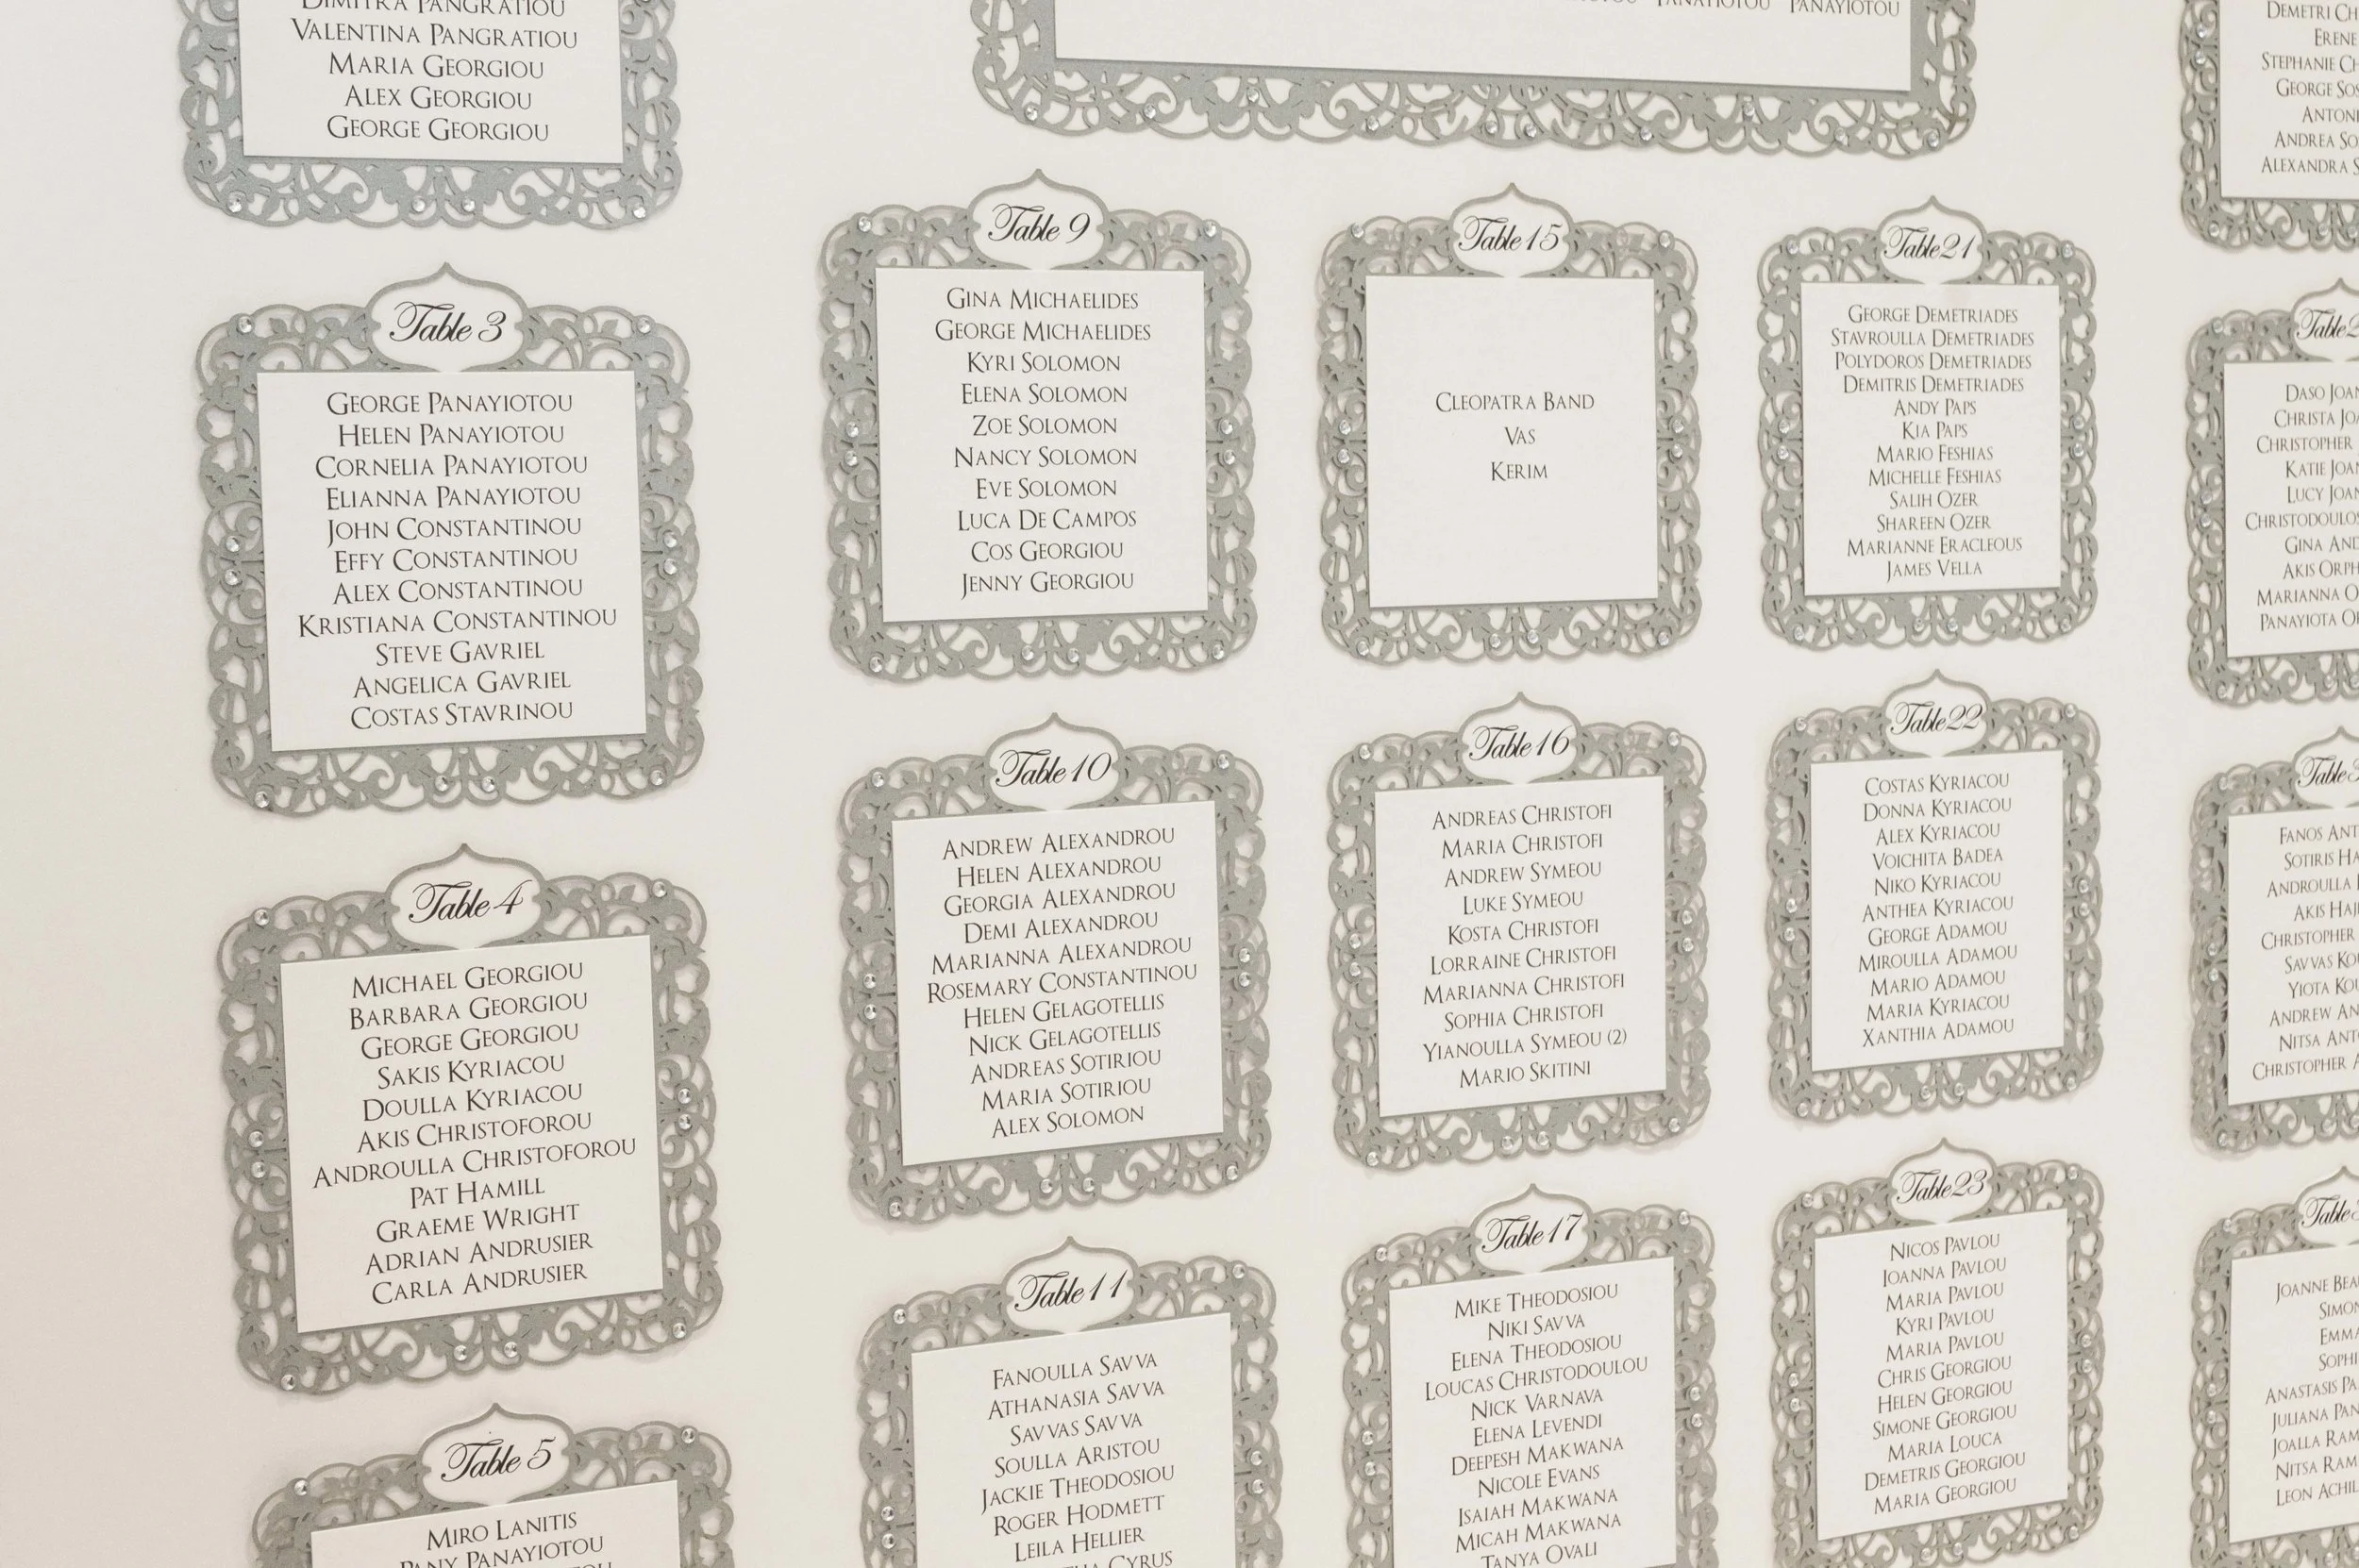 VALENTINA PANGRATIOU
MARIA GEORGIOU
ALEX GEORGIOU
GEORGE GEORGIOU
Table 3
GEORGE PANAYIOTOU
HELEN PANAYIOTOU
CORNELIA PANAYIOTOU
ELIANNA PANAYIOTOU
JOHN CONSTANTINOU
EFFY CONSTANTINOU
ALEX CONSTANTINOU
KRISTIANA CONSTANTINOU
STEVE GAVRIEL
ANGELICA GAVRIEL
COSTAS STAVRINOU
Table 4
MICHAEL GEORGIOU
BARBARA GEORGIOU
GEORGE GEORGIOU
SAKIS KYRIACOU
DOULLA KYRIACOU
AKIS CHRISTOFOROU
ANDROULLA CHRISTOFOROU
PAT HAMILL
GRAEME WRIGHT
ADRIAN ANDRUSIER
CARLA ANDRUSIER
Table 5
MIRO LANITIS
PANAYIOTOU
PANAYIOTOU PANAYIOTOU
Table 9
GINA MICHAELIDES
GEORGE MICHAELIDES
KYRI SOLOMON
ELENA SOLOMON
ZOE SOLOMON
NANCY SOLOMON
EVE SOLOMON
LUCA DE CAMPOS
COS GEORGIOU
JENNY GEORGIOU
Table 10
ANDREW ALEXANDROU
HELEN ALEXANDROU
GEORGIA ALEXANDROU
DEMI ALEXANDROU
MARIANNA ALEXANDROU
ROSEMARY CONSTANTINOU
HELEN GELAGOTELLIS
NICK GELAGOTELLIS
ANDREAS SOTIRIOU
MARIA SOTIRIOU
ALEX SOLOMON
Table 11
FANOULLA SAVVA
ATHANASIA SAVVA
SAVVAS SAVVA
SOULLA ARISTOU
JACKIE THEODOSIOU
ROGER HODMETT
LEILA HELLIER
CYRUS
Table 15
CLEOPATRA BAND
VAS
KERIM
Table 16
ANDREAS CHRISTOFI
MARIA CHRISTOFI
ANDREW SYMEOU
LUKE SYMEOU
KOSTA CHRISTOFI
LORRAINE CHRISTOFI
MARIANNA CHRISTOFI
SOPHIA CHRISTOFI
YIANOULLA SYMEOU (2)
MARIO SKITINI
Table 17
MIKE THEODOSIOU
NIKI SAVVA
ELENA THEODOSIOU
LOUCAS CHRISTODOULOU
NICK VARNAVA
ELENA LEVENDI
DEEPESH MAKWANA
NICOLE EVANS
ISAIAH MAKWANA
MICAH MAKWANA
TANYA OVALI
Table 21
GEORGE DEMETRIADES
STAVROULLA DEMETRIADES
POLYDOROS DEMETRIADES
DEMITRIS DEMETRIADES
ANDY PAPS
KIA PAPS
MARIO FESHIAS
MICHELLE FESHIAS
SALIH OZER
SHAREEN OZER
MARIANNE ERACLEOUS
JAMES VELLA
Table 22
COSTAS KYRIACOU
DONNA KYRIACOU
ALEX KYRIACOU
VOICHITA BADEA
NIKO KYRIACOU
ANTHEA KYRIACOU
GEORGE ADAMOU
MIROULLA ADAMOU
MARIO ADAMOU
MARIA KYRIACOU
XANTHIA ADAMOU
Table 23
NICOS PAVLOU
IOANNA PAVLOU
MARIA PAVLOU
KYRI PAVLOU
MARIA PAVLOU
CHRIS GEORGIOU
HELEN GEORGIOU
SIMONE GEORGIOU
MARIA LOUCA
DEMETRIS GEORGIOU
MARIA GEORGIOU
DEMETRI
ERENE
STEPHANIE
GEORGE
ANDREA
ALEXANDRA
Table
DASO
CHRISTA
CHRISTOPHER
KATIE
LUCY
CHRISTODOULOS
GINA
AKIS
MARIANNA
PANAYIOTA
Table
FANOS
SOTIRIS
ANDROULLA
AKIS
CHRISTOPHER
SAVVAS
YIOTA
ANDREW
NITSA
CHRISTOPHER
Table
JOANNE
ANASTASIS
JULIANA
JOALLA
NITSA
LEON